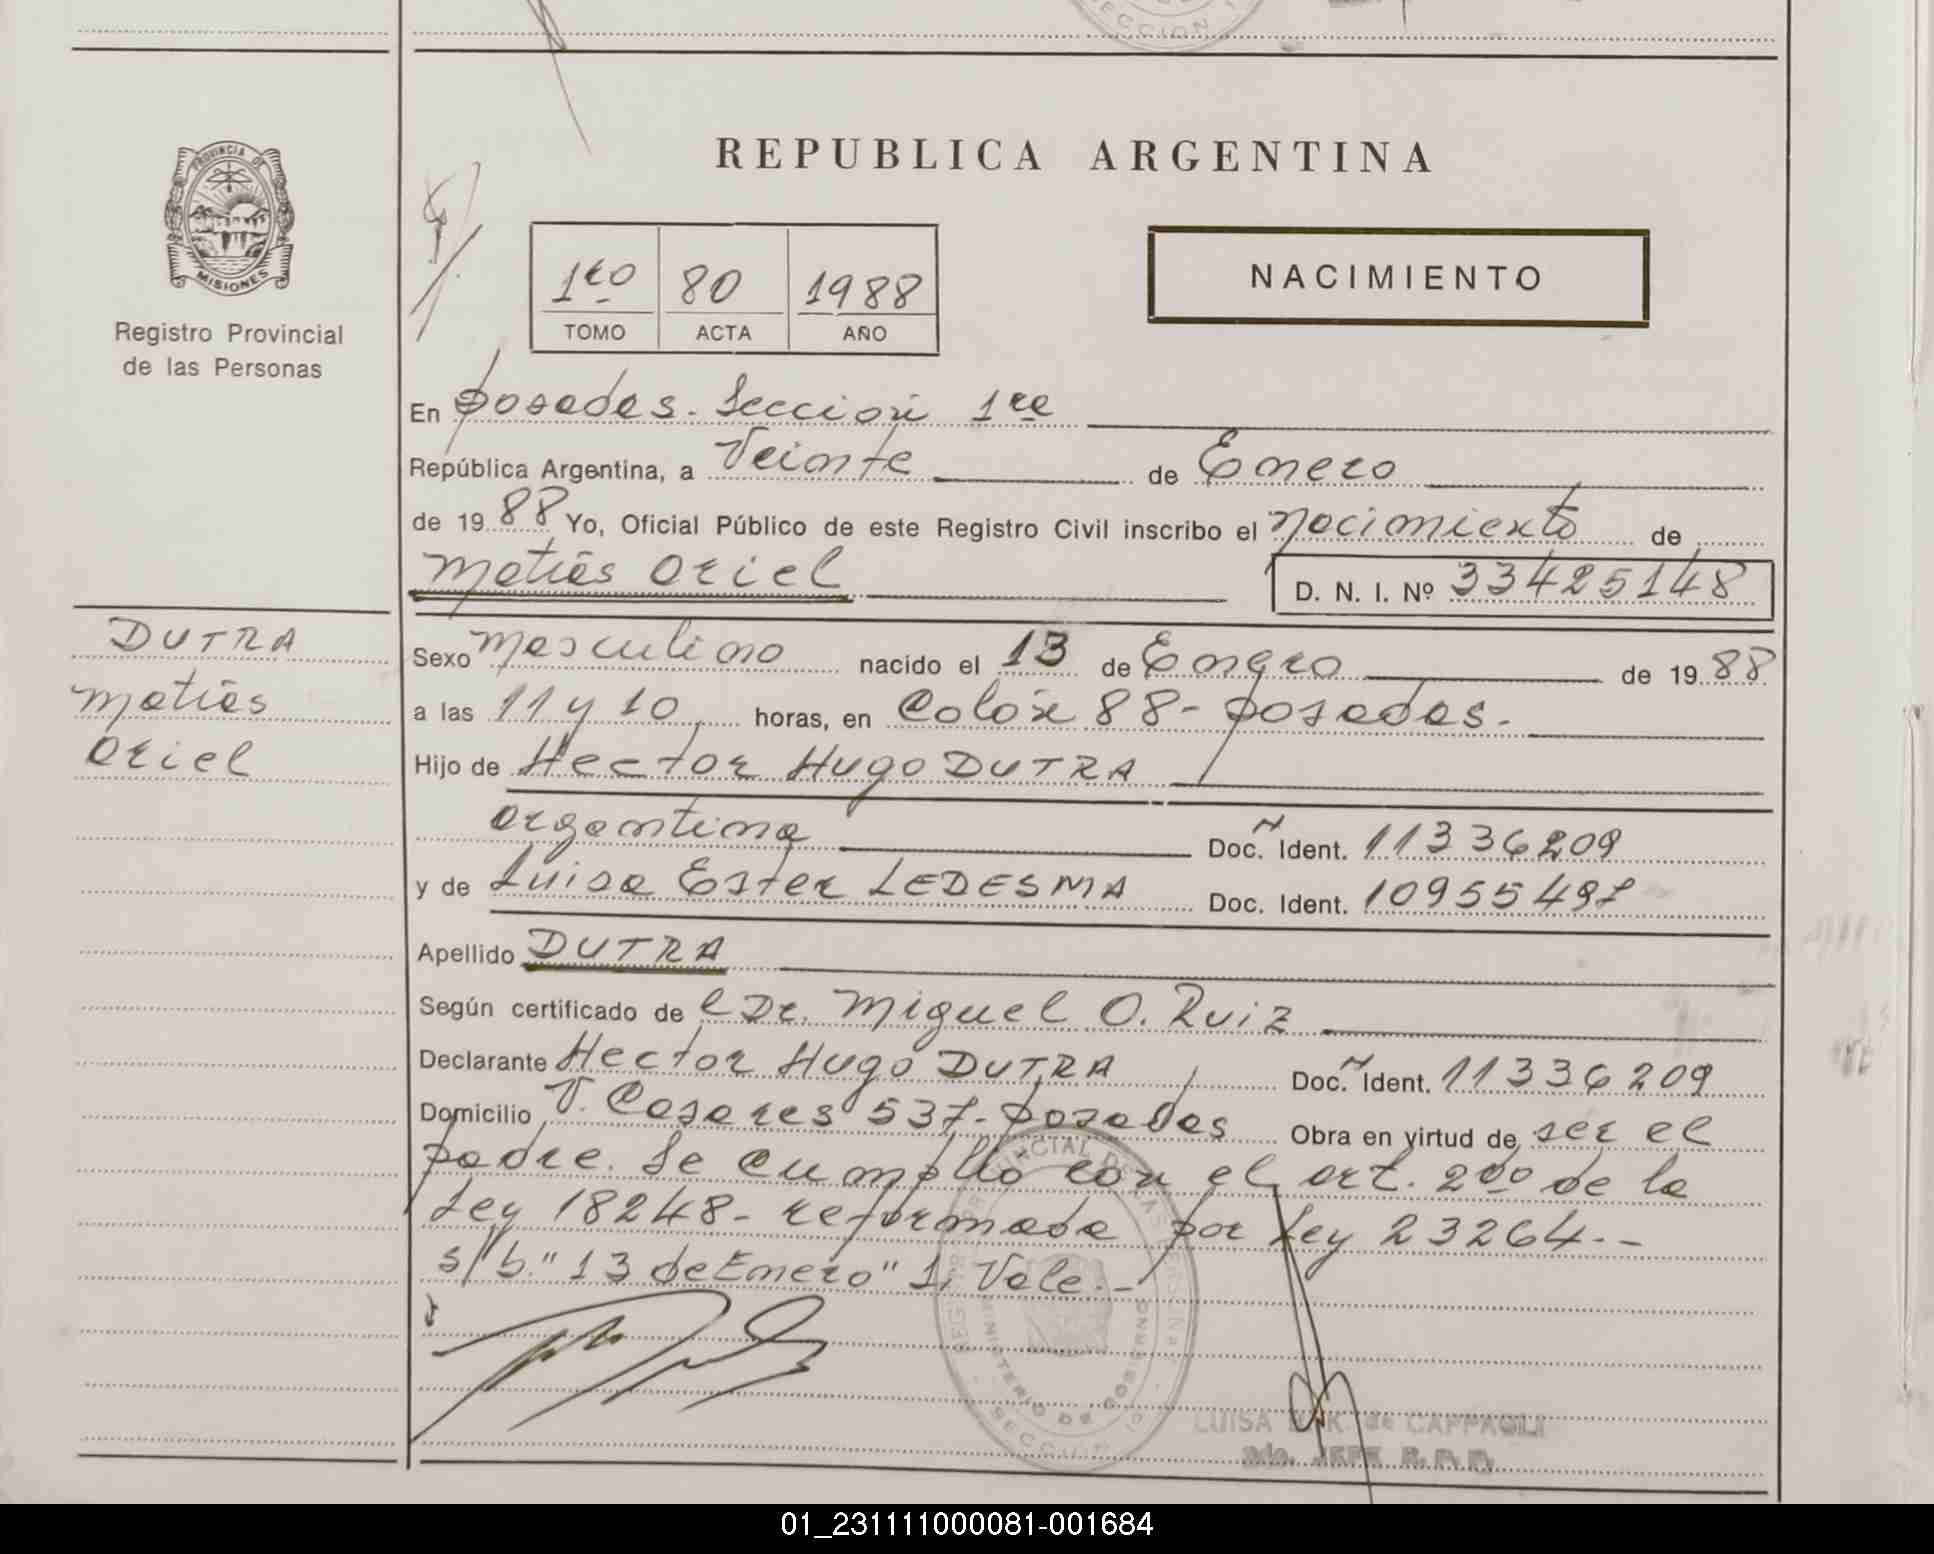 SECCION 1
PROVINCIA DE
MISIONES
Registro Provincial
de las Personas
REPUBLICA ARGENTINA
1ro 80 1988
TOMO ACTA AÑO
NACIMIENTO
En Posadas. Sección 1ra
República Argentina, a Veinte de Enero
de 1988 Yo, Oficial Público de este Registro Civil inscribo el nacimiento de
Matías Oriel
D. N. I. Nº 33425148
DUTRA
Matías
Oriel
Sexo Masculino nacido el 13 de Enero de 1988
a las 11 y 10 horas, en Colón 88- Posadas.
Hijo de Hector Hugo DUTRA
argentina Doc. Ident. 11336209
y de Luisa Ester LEDESMA Doc. Ident. 10955497
Apellido DUTRA
Según certificado de l Dr. Miguel O. Ruiz
Declarante Hector Hugo DUTRA Doc. Ident. 11336209
Domicilio V. Casares 537- Posadas Obra en virtud de ser el
padre. Se cumplio con el art. 2do de la
Ley 18248- reformada por Ley 23264.-
s/b. "13 de Enero" 1, Vale.-
MINISTERIO DE GOBIERNO
LUISA de CAPPAOLI
JEFE R. P. P.
01_231111000081-001684